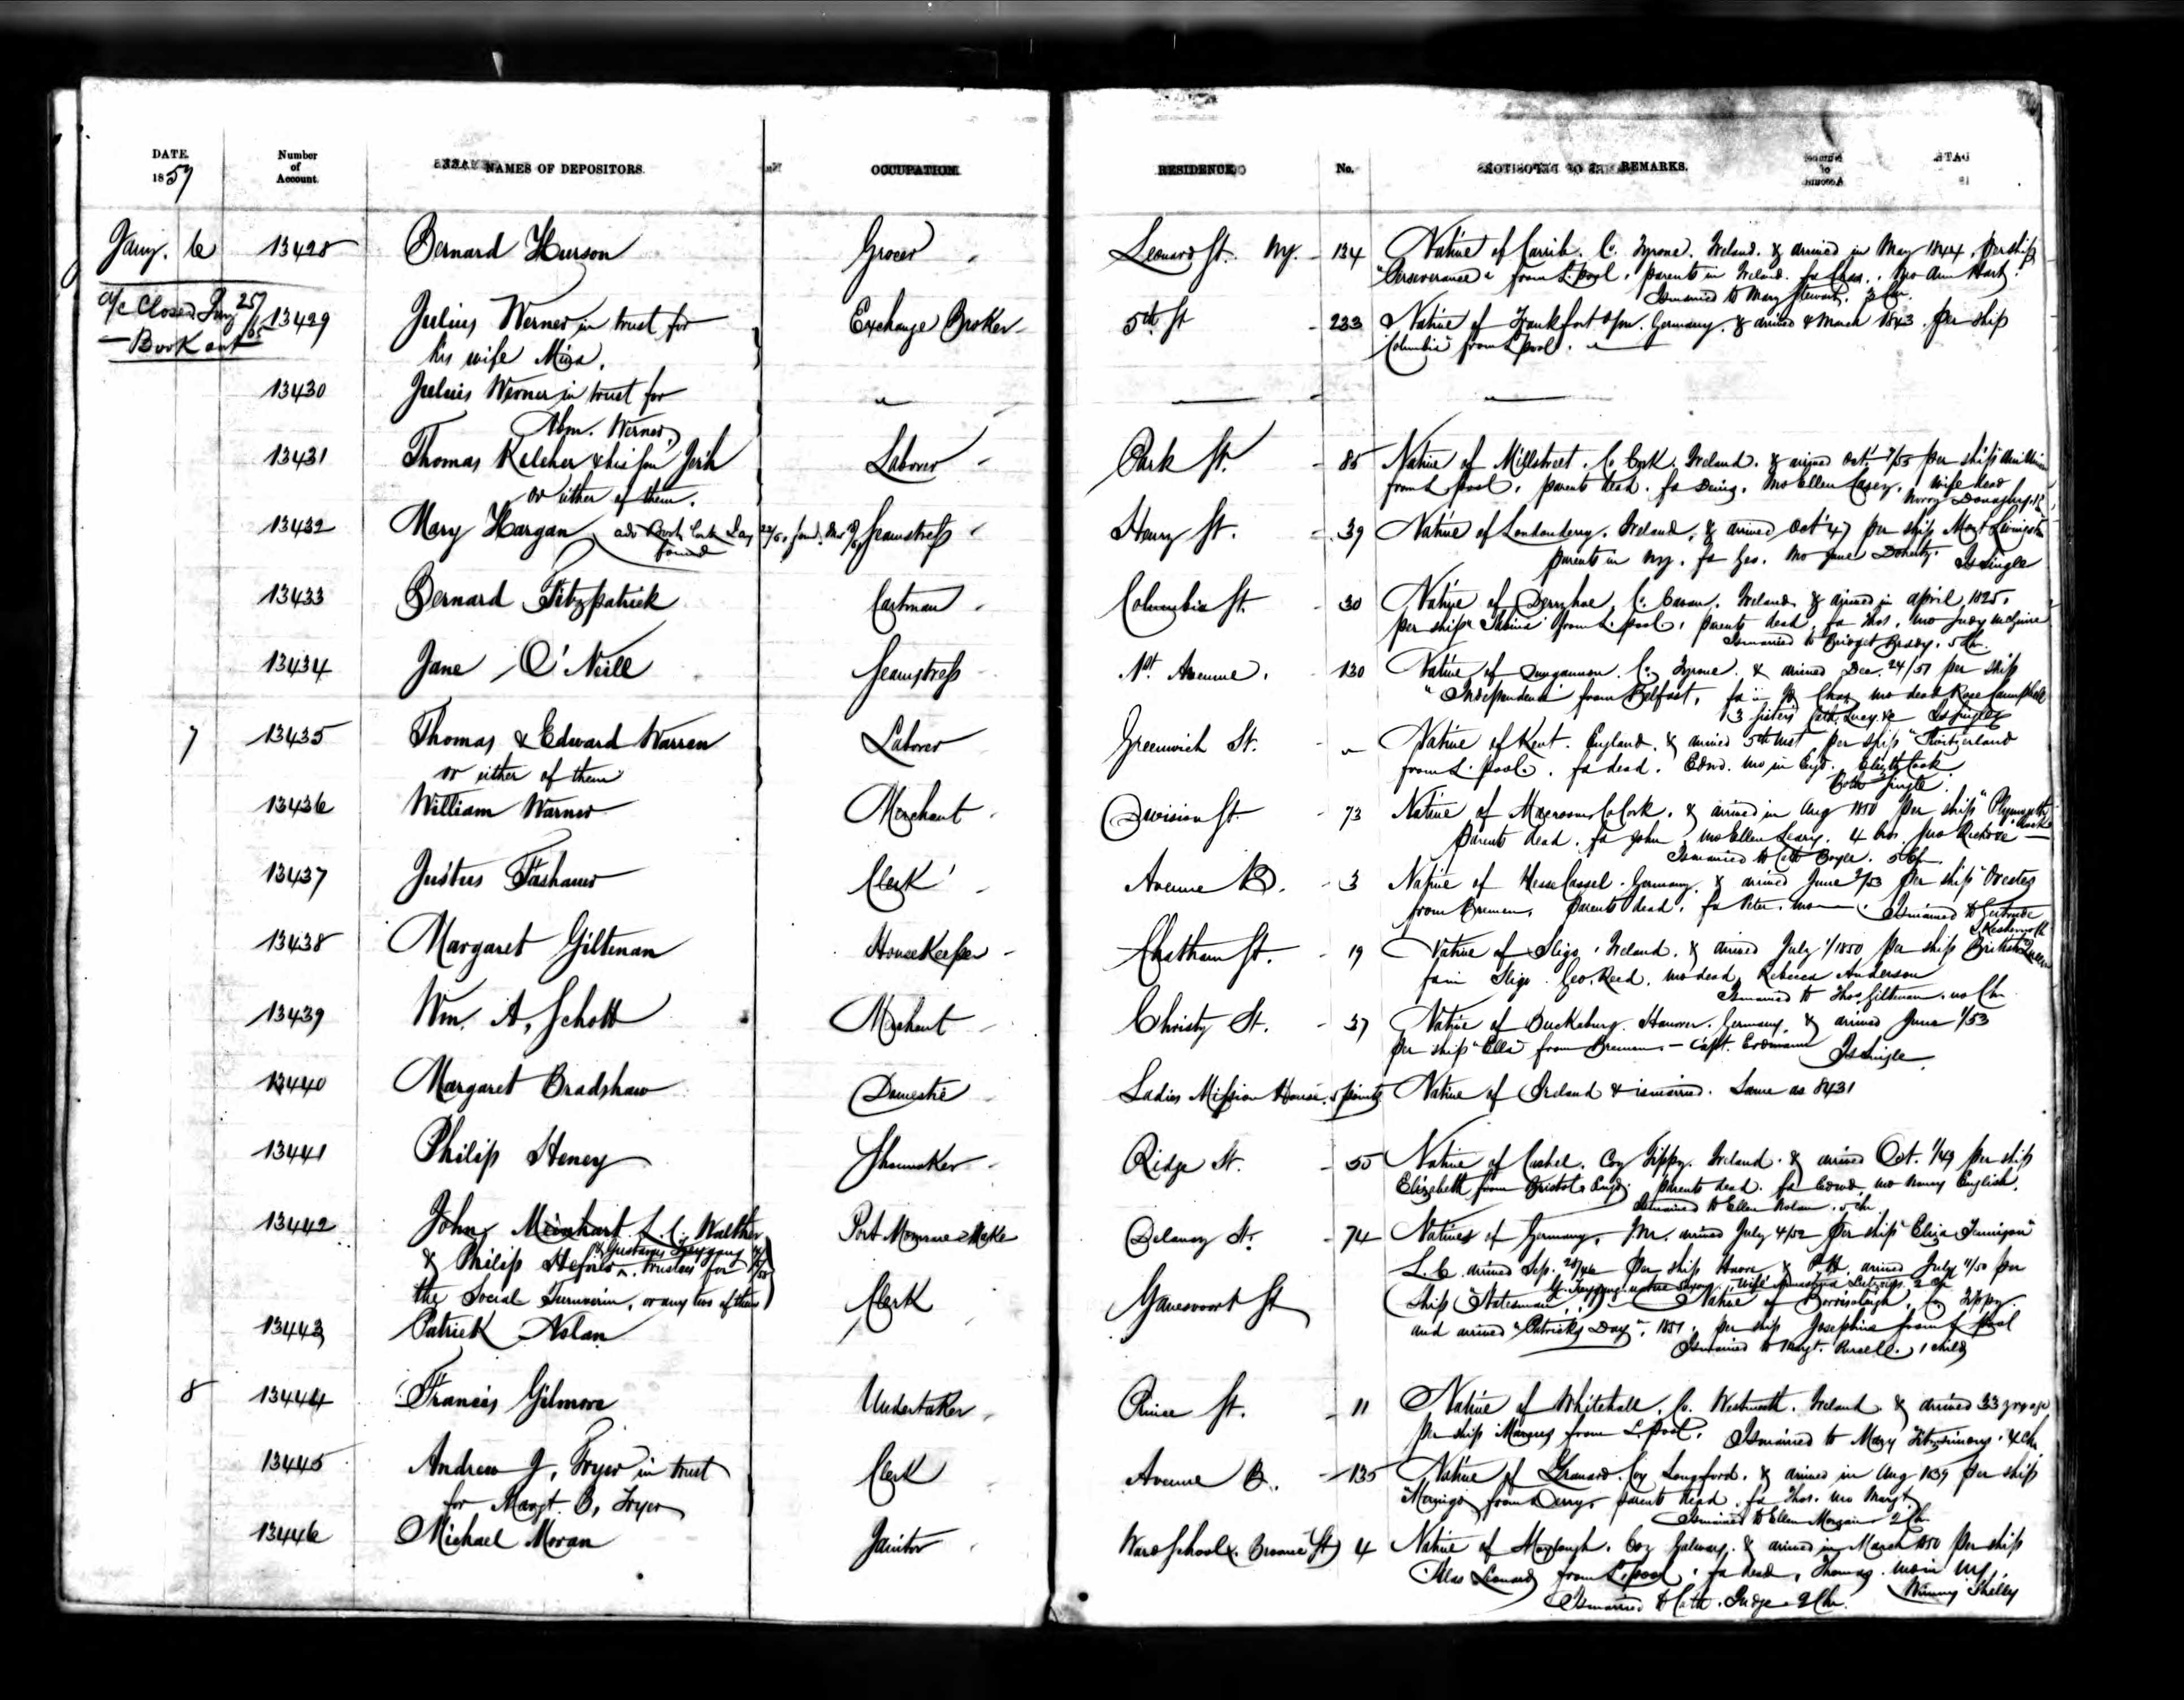 DATE. 1857
Number of Account.
NAMES OF DEPOSITORS.
OCCUPATION.
RESIDENCE.
No.
REMARKS.
Jany. 6 13428 Bernard Hurson Grocer Leonard St. Ny. 134 Native of Carrick. Co. Tyrone. Ireland. & arrived in May 1844. per ship
"Perseverance" from L.pool. parents in Ireland. fa Chas. mo Ann Hart.
Is married to Mary Stewart. 3 Chr.
a/c Closed Jany 25/65
Book out
13429 Julius Werner in trust for Exchange Broker 5th St 233 Native of Frankfort o/m. Germany. & arrived 4 March 1843. per ship
his wife Mina. "Columbia" from L.pool.
13430 Julius Werner in trust for
Abm. Werner
13431 Thomas Kelcher & his son Jer'h Laborer Park St. 85 Native of Millstreet. Co. Cork. Ireland. & arrived Oct. 7/55 per ship
or either of them. from L.pool. parents dead. fa Denis. mo Ellen Casey. wife dead
Norry Donaghy.
13432 Mary Hargan Seamstress Henry St. 39 Native of Londonderry. Ireland. & arrived Oct 47 per ship Mont Livingston
found parents in Ny. fa Geo. mo Jane Doherty. Is single
13433 Bernard Fitzpatrick Cartman Columbia St. 30 Native of Co. Cavan. Ireland. & arrived in April 1825.
per ship from L.pool. parents dead. fa Thos. mo Judy McGuire
Is married to Bridget Brady. 5 Chr.
13434 Jane O'Neill Seamstress 1st. Avenue. 130 Native of Dungannon. Co. Tyrone. & arrived Dec. 24/51 per ship
"Independence" from Belfast. fa in Chas. mo dead Rose Campbell
3 sisters Cath, Lucy & Is single
7 13435 Thomas & Edward Warren Laborer Greenwich St. Native of Kent. England. & arrived 5th inst per ship "Switzerland"
or either of them from L.pool. fa dead. Edwd. mo in Engd. Elizth Cook.
Both single.
13436 William Warner Merchant Division St. 73 Native of Macroom Co Cork. & arrived in Aug 1850 per ship "Plymouth Rock"
parents dead. fa John. mo Ellen Leary. 4 bros.
Is married to Cath Boyle. 5 Ch.
13437 Justus Clerk Avenue B. 3 Native of Hesse Cassel. Germany. & arrived June 2/53 per ship "Orestes
from Bremen. parents dead. fa Peter. mo —. Is married to Gertrude
13438 Margaret Giltenan HouseKeeper Chatham St. 19 Native of Sligo. Ireland. & arrived July 1/1850 per ship British Queen
fa in Sligo. Geo. Reed. mo dead Rebecca Anderson
Is married to Thos Giltenan. no Chr
13439 Wm. A. Schott Merchant Christy St. 37 Native of Buckeburg. Hanover. Germany. & arrived June 1/53
per ship "Ella" from Bremen. — Capt. Erdmann Is single.
13440 Margaret Bradshaw Domestic Ladies Mission House. 5 points. Native of Ireland & is married. Same as 8431
13441 Philip Heney Shoemaker Ridge St. 55 Native of Cashel. Coy Tippy. Ireland. & arrived Oct. 1/49 per ship
Elizabeth from Bristol Engd. parents dead. fa Edwd. mo Nancy English.
Is married to Ellen Nolan. 5 chr.
13442 John Meinhart L. C. Walther Port Monnaie Maker Delancy St. 74 Natives of Germany. J.M. arrived July 4/52 per ship "Eliza
& Philip & Gustavus trustees for L.C. arrived Sep. per ship Havre & P.H. arrived July 11/50 per
the Social Turnverin, or any two of them ship "Statesman"
13443 Patrick Nolan Clerk Gansevoort St Native of Borrisoleigh, Coy Tippy.
and arrived "Patricks Day", 1851, per ship Josephine from L.pool
Is married to Margt. Russell. 1 child
8 13444 Francis Gilmore Undertaker Prince St. 11 Native of Whitehall. Co. Westmeath. Ireland & arrived 33 yrs ago
per ship from L.pool. Is married to Mary Fitzsimons. 4 Chr.
13445 Andrew J. Fryer in trust Clerk Avenue B. 135 Native of Granard. Coy Longford. & arrived in Aug 1839 per ship
for Margt. B. Fryer from Derry. parents dead. fa Thos. mo Margt
Is married to Ellen Morgan 2 Ch.
13446 Michael Moran Janitor Ward School. Broome St 4 Native of Coy Galway. & arrived in March 1850 per ship
Leonard from L.pool. fa dead. Thomas. mo in Ny.
Is married to Cath. Judge 2 Chr. Winny Shelly